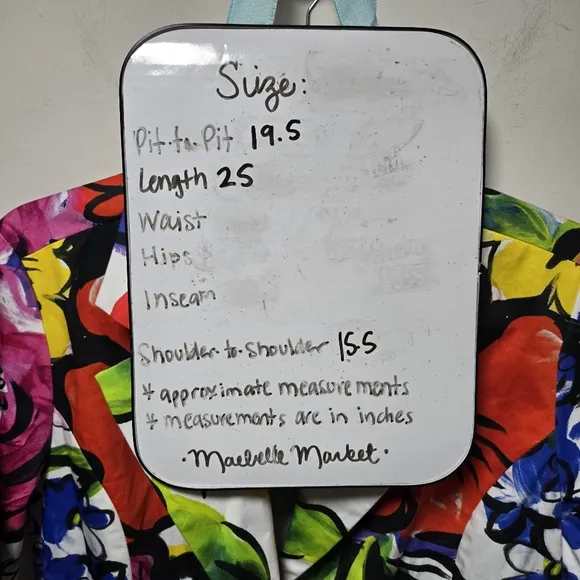 Size:
Pit-to-Pit 19.5
Length 25
Waist
Hips
Inseam
Shoulder-to-Shoulder 15.5
* approximate measurements
* measurements are in inches
·Maebelle Market·